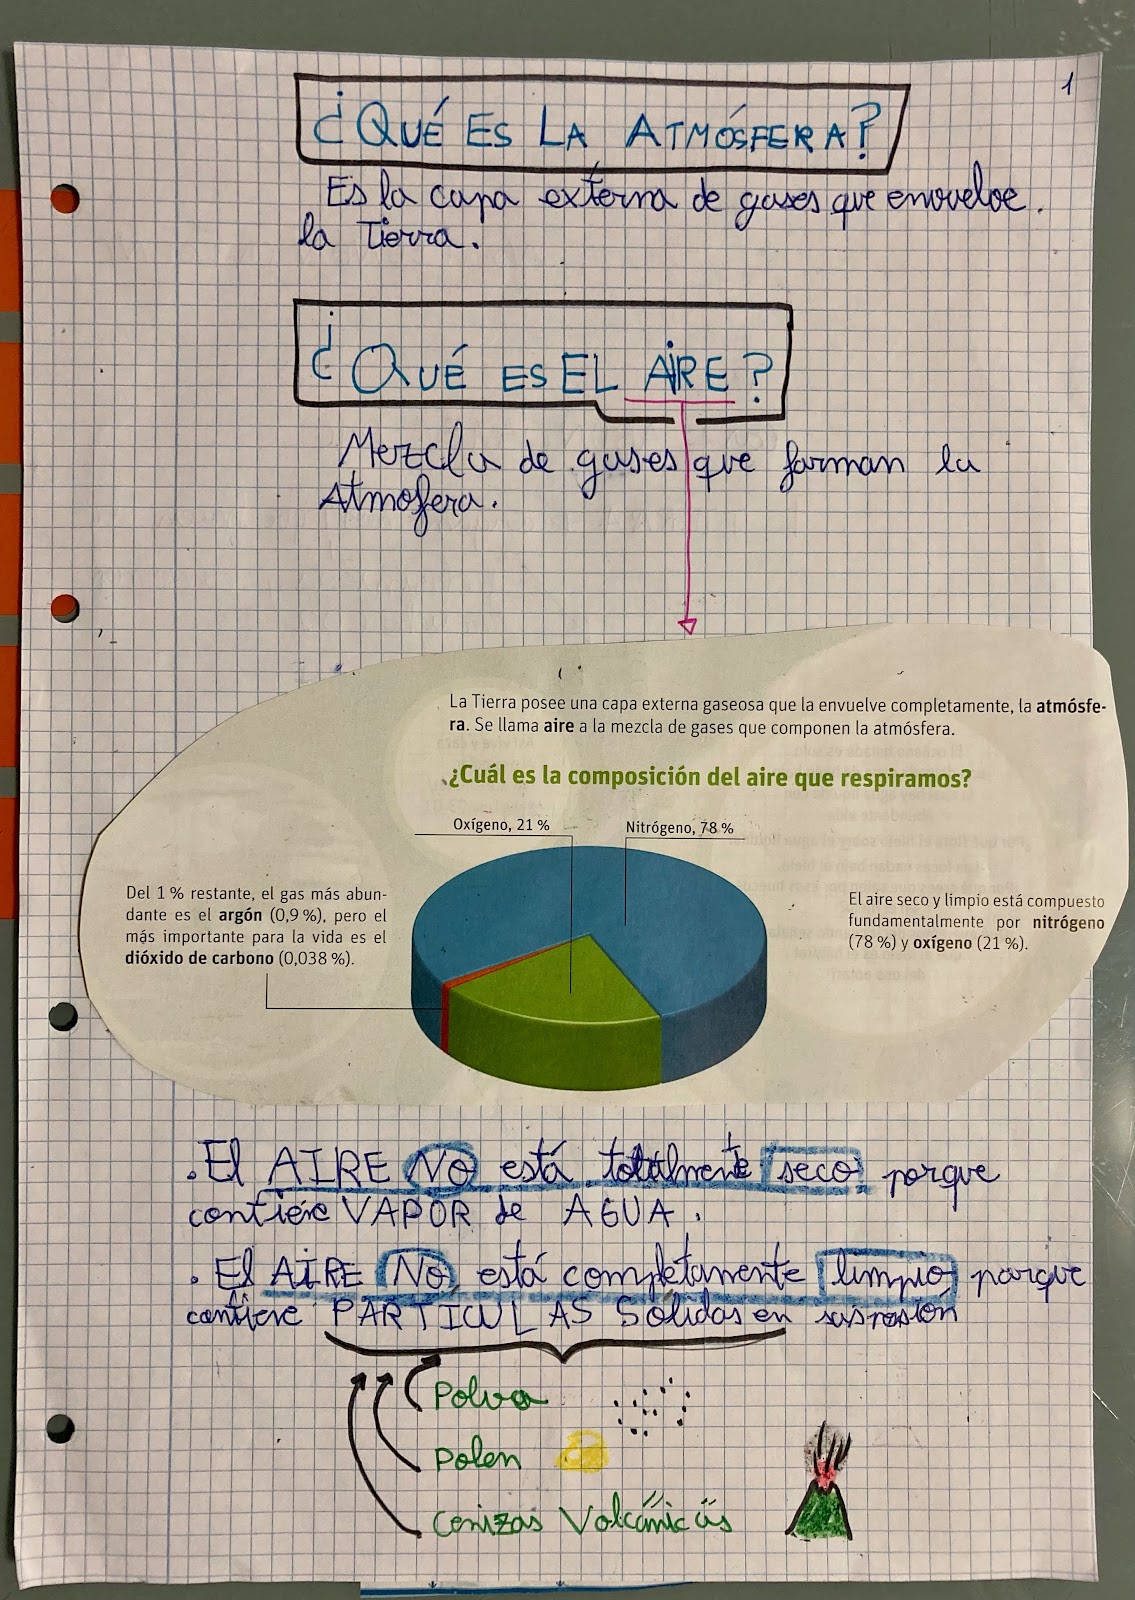 1
¿QUÉ ES LA ATMÓSFERA?
Es la capa externa de gases que envuelve.
la Tierra.
¿QUÉ ES EL AIRE?
Mezcla de gases que forman la
Atmofera.
La Tierra posee una capa externa gaseosa que la envuelve completamente, la atmósfe-
ra. Se llama aire a la mezcla de gases que componen la atmósfera.
¿Cuál es la composición del aire que respiramos?
Oxígeno, 21 %
Nitrógeno, 78 %
Del 1 % restante, el gas más abun-
dante es el argón (0,9 %), pero el
más importante para la vida es el
dióxido de carbono (0,038 %).
El aire seco y limpio está compuesto
fundamentalmente por nitrógeno
(78 %) y oxígeno (21 %).
. El AIRE NO está totalmente seco porque
contiene VAPOR de AGUA.
. El AIRE NO está completamente limpio porque
contiene PARTÍCULAS Sólidas en
Polvo
Polen
Cenizas Volcánicas